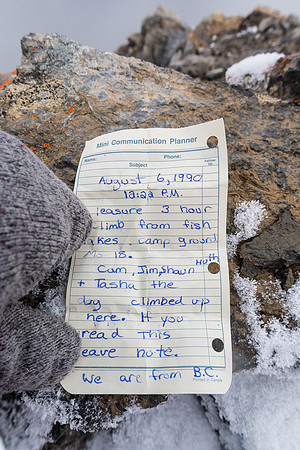 Mini Communication Planner
Name: Phone:
Subject
August 6, 1990
P.M.
easure 3 hour
climb from fish
akes, camp ground
18.
Cam, Jim, Shawn Huth
+ Tasha the
dog climbed up
here. If you
read This
eave note.
We are from B.C.
Printed in Canada